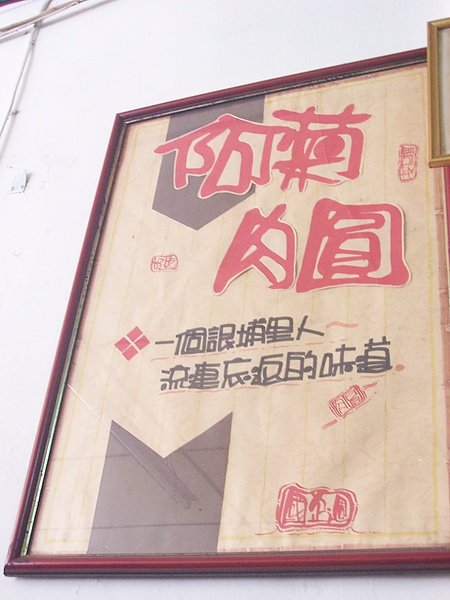 阿菊
肉圓
一個誏埔里人
流連忘返的味道